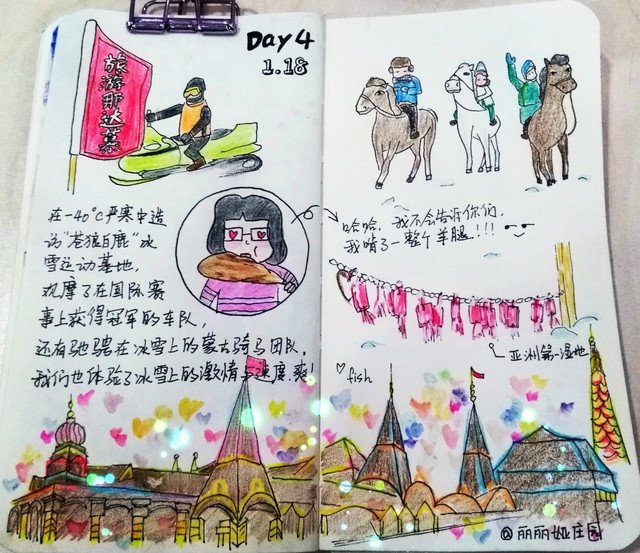 Day 4
1.18
旅游那达慕
在-40°C严寒中造
访"苍狼白鹿"冰
雪运动基地,
观摩了在国际赛
事上获得冠军的车队,
还有驰骋在冰雪上的蒙古骑马团队,
我们也体验了冰雪上的激情与速度.爽!
哈哈,我不会告诉你们,
我啃了一整个羊腿!!!
亚洲第一湿地
fish
@丽丽娅庄园